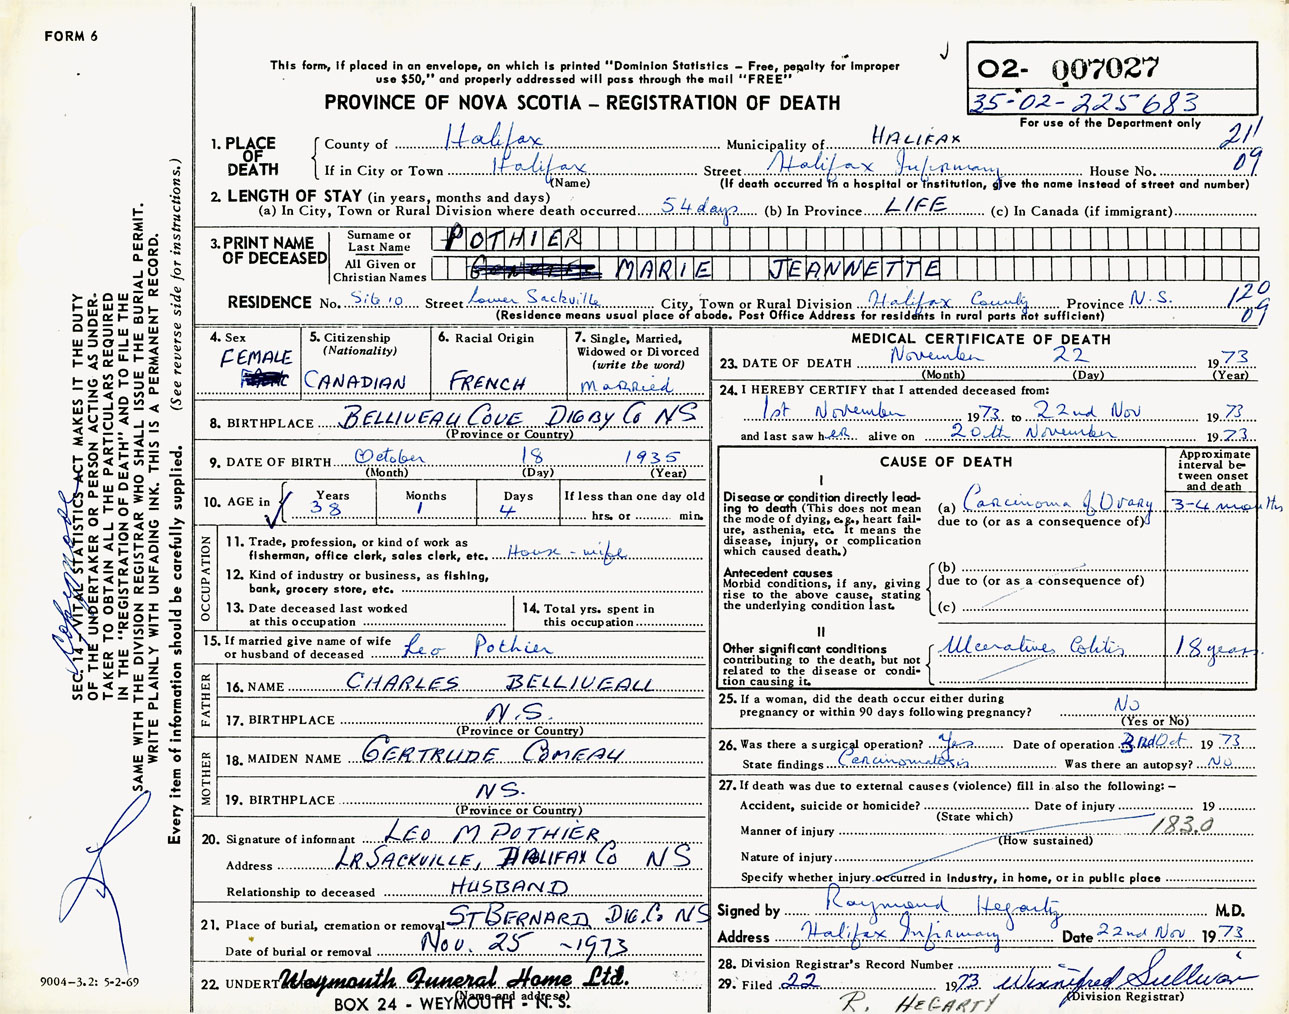 FORM 6
This form, if placed in an envelope, on which is printed "Dominion Statistics – Free, penalty for improper
use $50," and properly addressed will pass through the mail "FREE"
PROVINCE OF NOVA SCOTIA – REGISTRATION OF DEATH
O2- 007027
35-02-225683
For use of the Department only
21'
09
1. PLACE OF DEATH
County of Halifax Municipality of HALIFAX
If in City or Town Halifax Street Halifax Infirmary House No.
(Name) (If death occurred in a hospital or institution, give the name instead of street and number)
2. LENGTH OF STAY (in years, months and days)
(a) In City, Town or Rural Division where death occurred 54 days (b) In Province LIFE (c) In Canada (if immigrant)
3. PRINT NAME OF DECEASED
Surname or Last Name POTHIER
All Given or Christian Names MARIE JEANNETTE
RESIDENCE No. Site 10 Street Lower Sackville City, Town or Rural Division Halifax County Province N.S.
120
09
(Residence means usual place of abode. Post Office Address for residents in rural parts not sufficient)
4. Sex
FEMALE
5. Citizenship
(Nationality)
CANADIAN
6. Racial Origin
FRENCH
7. Single, Married,
Widowed or Divorced
(write the word)
MARRIED
8. BIRTHPLACE BELLIVEAU COVE DIGBY CO NS
(Province or Country)
9. DATE OF BIRTH October 18 1935
(Month) (Day) (Year)
10. AGE in
Years Months Days If less than one day old
38 1 4 hrs. or min.
OCCUPATION
11. Trade, profession, or kind of work as
fisherman, office clerk, sales clerk, etc. House-wife
12. Kind of industry or business, as fishing,
bank, grocery store, etc.
13. Date deceased last worked
at this occupation
14. Total yrs. spent in
this occupation
15. If married give name of wife
or husband of deceased Leo Pothier
FATHER
16. NAME CHARLES BELLIVEAU
17. BIRTHPLACE N.S.
(Province or Country)
MOTHER
18. MAIDEN NAME GERTRUDE COMEAU
19. BIRTHPLACE NS.
(Province or Country)
20. Signature of informant LEO M POTHIER
Address LR SACKVILLE, HALIFAX CO NS
Relationship to deceased HUSBAND
21. Place of burial, cremation or removal ST BERNARD DIG. CO NS
Date of burial or removal NOV. 25 - 1973
22. UNDERT Weymouth Funeral Home Ltd.
(Name and address)
BOX 24 - WEYMOUTH - N. S.
MEDICAL CERTIFICATE OF DEATH
23. DATE OF DEATH November 22 1973
(Month) (Day) (Year)
24. I HEREBY CERTIFY that I attended deceased from:
1st November 1973 to 22nd Nov 1973
and last saw her alive on 20th November 1973
CAUSE OF DEATH
Approximate
interval be-
tween onset
and death
I
Disease or condition directly lead-
ing to death (This does not mean
the mode of dying, e.g., heart fail-
ure, asthenia, etc. It means the
disease, injury, or complication
which caused death.)
(a) Carcinoma of Ovary 3-4 months
due to (or as a consequence of)
Antecedent causes
Morbid conditions, if any, giving
rise to the above cause, stating
the underlying condition last.
(b)
due to (or as a consequence of)
(c)
II
Other significant conditions
contributing to the death, but not
related to the disease or condi-
tion causing it.
Ulcerative Colitis 18 years.
25. If a woman, did the death occur either during
pregnancy or within 90 days following pregnancy? No
(Yes or No)
26. Was there a surgical operation? Yes Date of operation 2nd Oct 1973
State findings Carcinomatosis Was there an autopsy? No
27. If death was due to external causes (violence) fill in also the following: –
Accident, suicide or homicide? Date of injury 19
(State which)
Manner of injury 183.0
(How sustained)
Nature of injury
Specify whether injury occurred in industry, in home, or in public place
Signed by Raymond Hegarty M.D.
Address Halifax Infirmary Date 22nd Nov 1973
28. Division Registrar's Record Number
29. Filed 22 1973 Winnifred Sullivan
(Division Registrar)
R. HEGARTY
SEC. 14 – VITAL STATISTICS ACT MAKES IT THE DUTY
OF THE UNDERTAKER OR PERSON ACTING AS UNDER-
TAKER TO OBTAIN ALL THE PARTICULARS REQUIRED
IN THE "REGISTRATION OF DEATH" AND TO FILE THE
SAME WITH THE DIVISION REGISTRAR WHO SHALL ISSUE THE BURIAL PERMIT.
WRITE PLAINLY WITH UNFADING INK. THIS IS A PERMANENT RECORD.
(See reverse side for instructions.)
Every item of information should be carefully supplied.
9004–3.2: 5-2-69